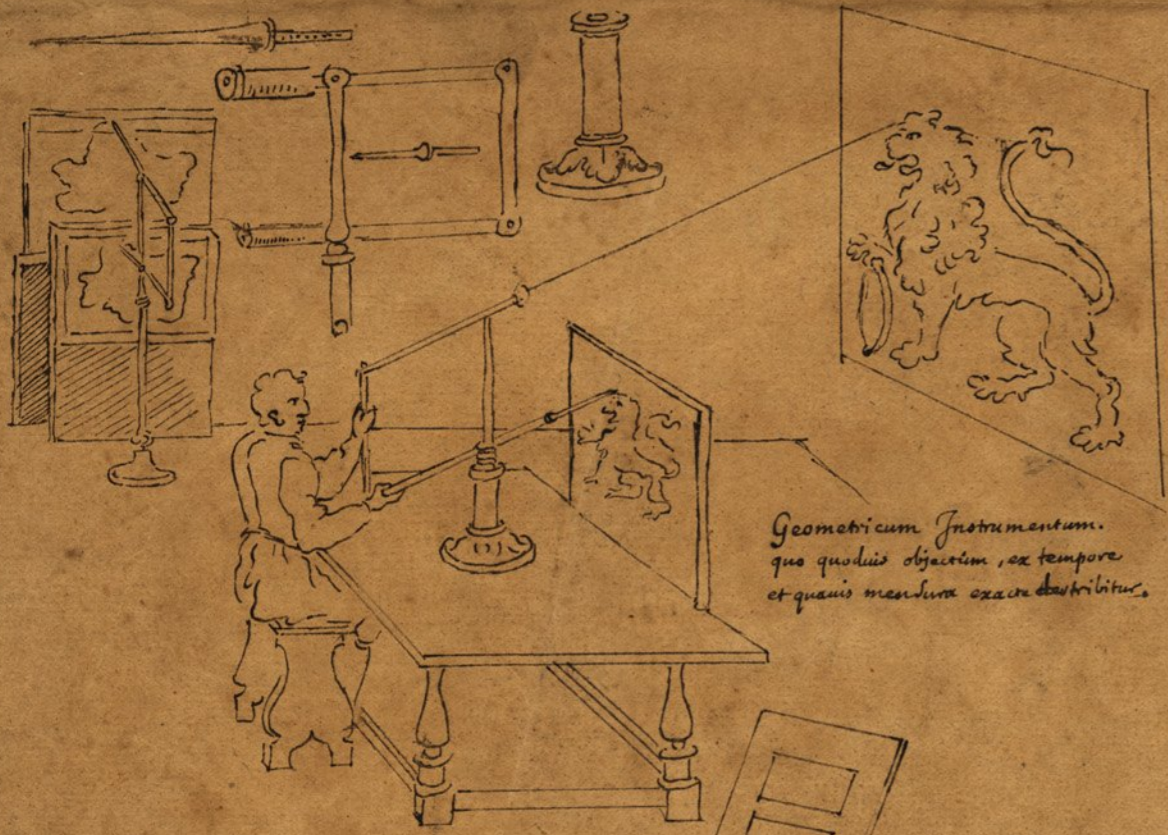 Geometricum Instrumentum.
quo quoduis objectum, ex tempore
et quauis mensura exacte